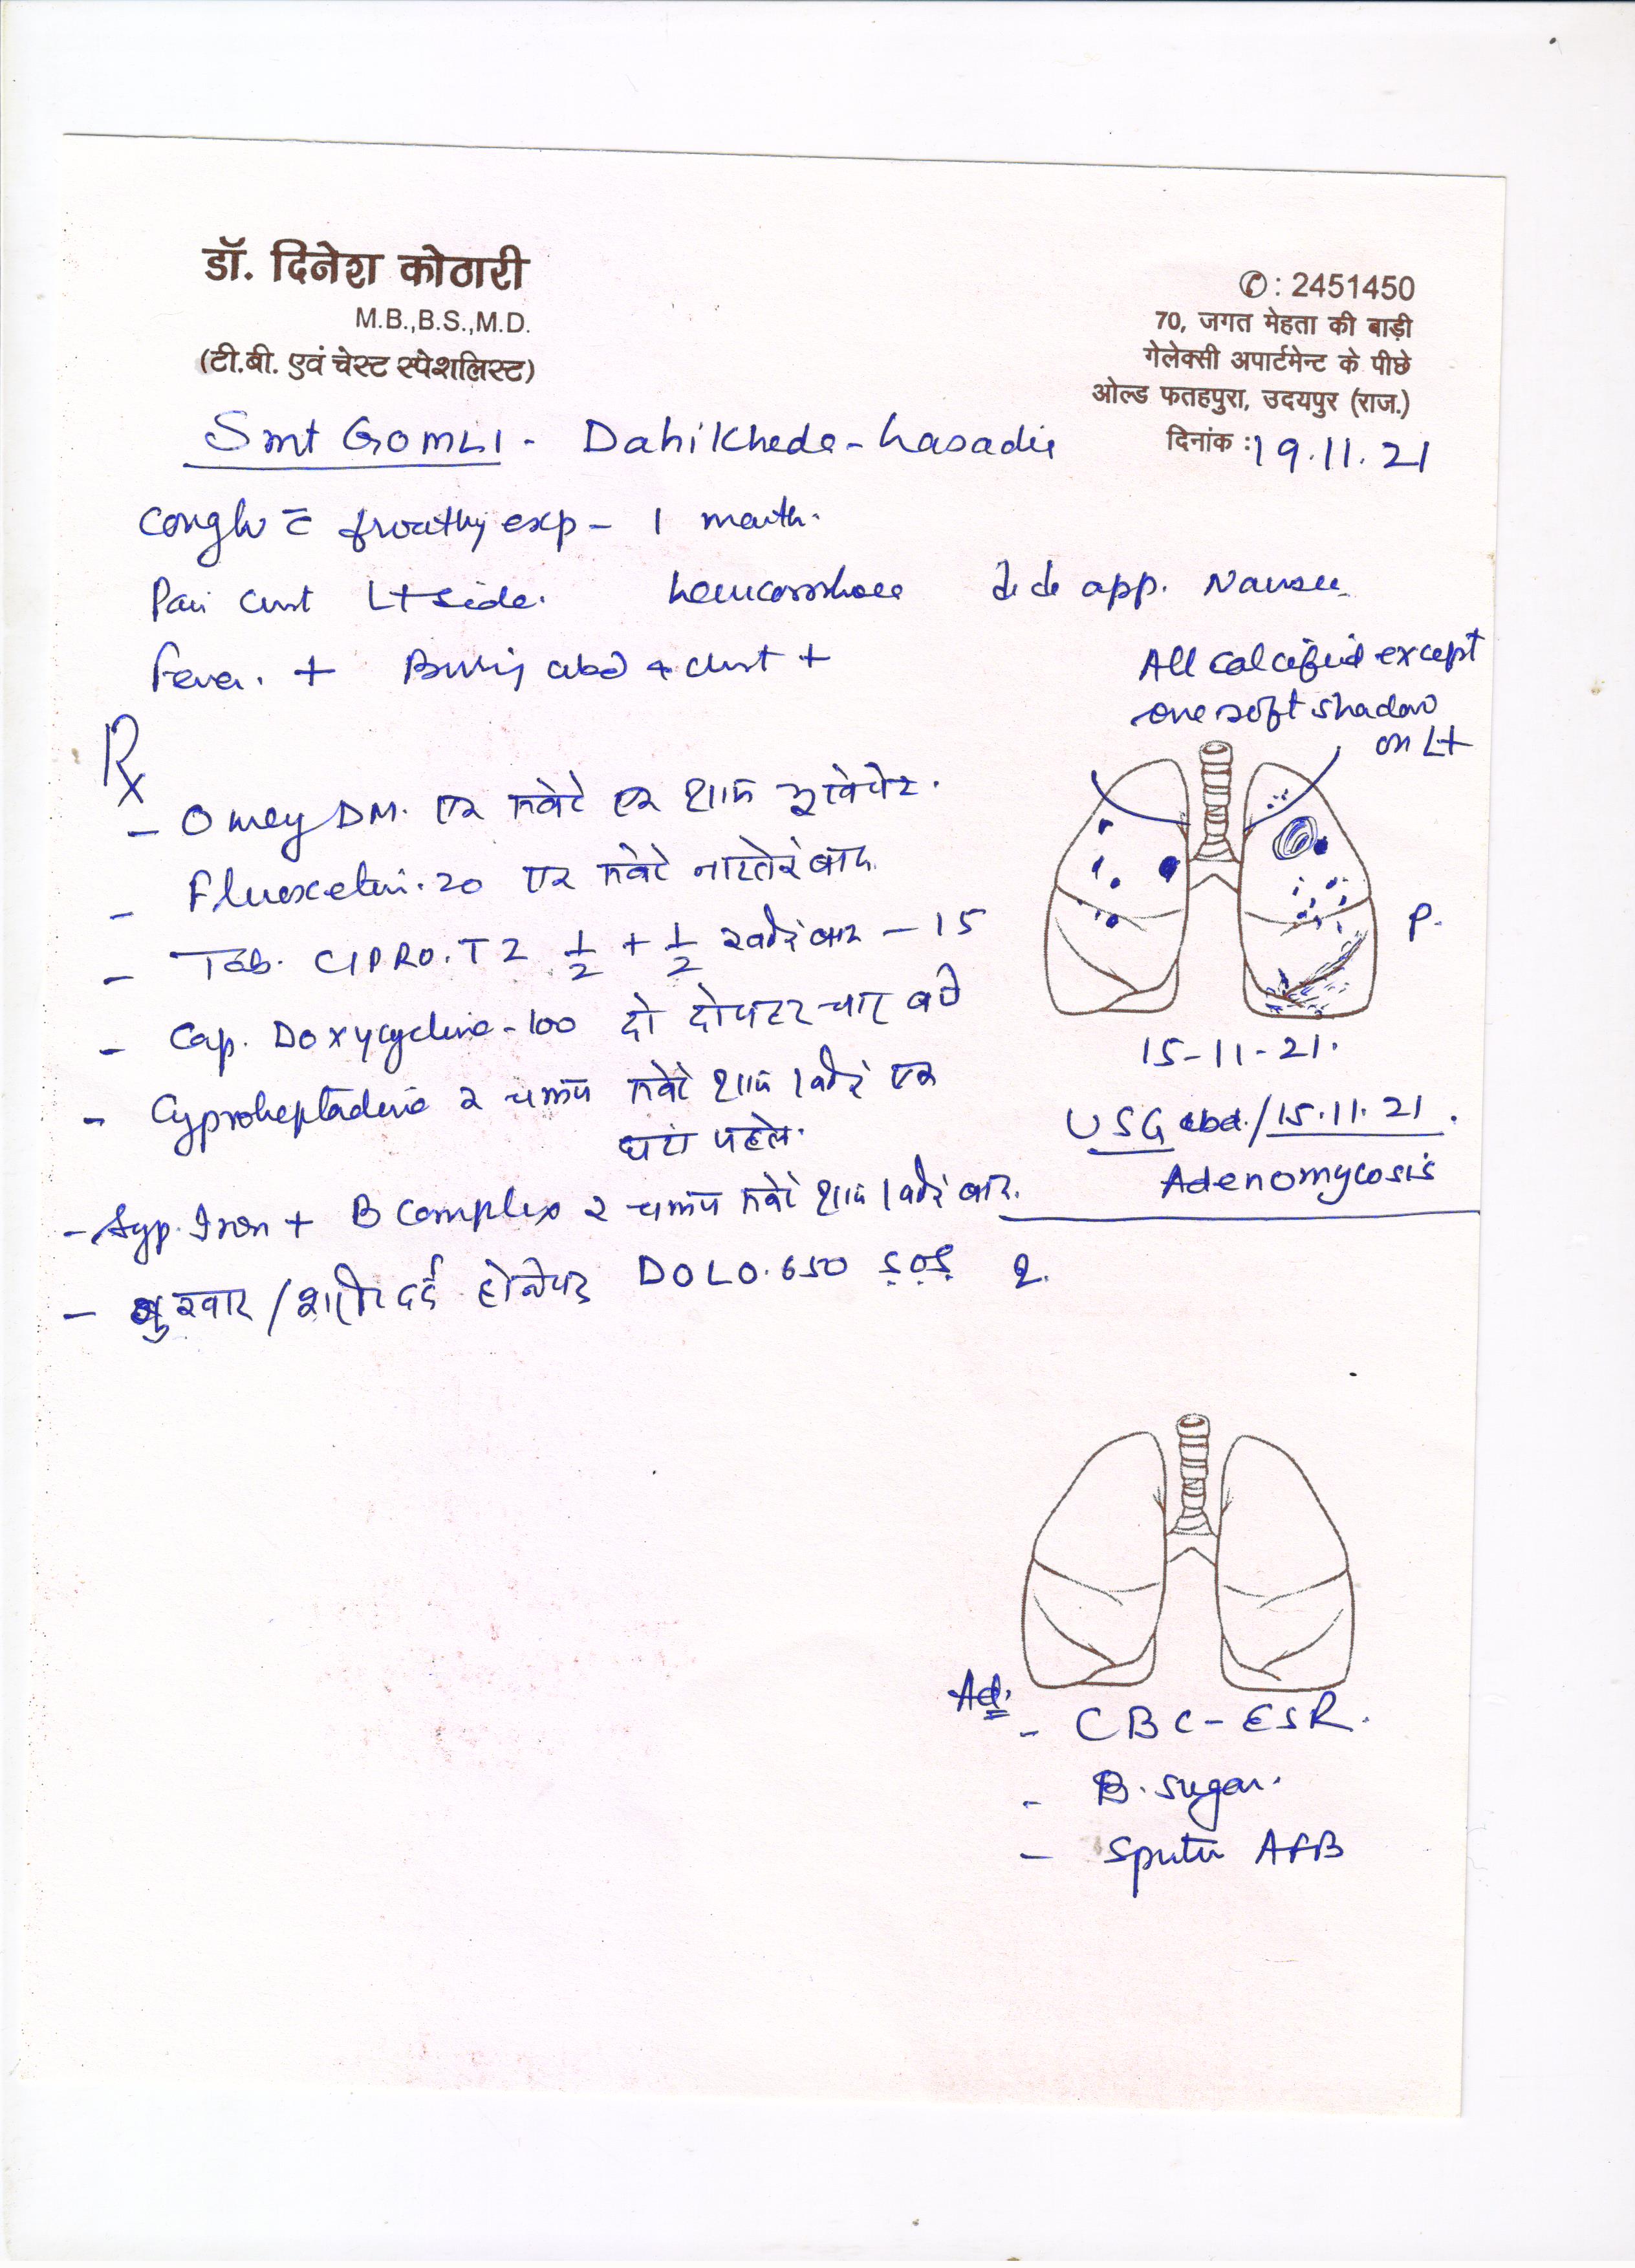 डॉ. दिनेश कोठारी
M.B.,B.S.,M.D.
(टी.बी. एवं चेस्ट स्पेशलिस्ट)
✆: 2451450
70, जगत मेहता की बाड़ी
गेलेक्सी अपार्टमेन्ट के पीछे
ओल्ड फतहपुरा, उदयपुर (राज.)
दिनांक : 19.11.21
Smt GOMLI - Dahikheda - Lasadia
Cough c̄ froathy exp - 1 month.
Pain chest Lt side. Leucorrhoea app. Nausea
Fever. + Burning abd + chest +
All calcified except
one soft shadow
on Lt
Rx
- Omey DM. एक सवेरे एक शाम भूखे पेट.
- Fluoxetin. 20 एक सवेरे नाश्ते के बाद
- Tab. CIPRO. TZ 1/2 + 1/2 खाने के बाद - 15
- Cap. Doxycycline - 100 दो दोपहर चार बजे
- Cyproheptadine २ चम्मच सवेरे शाम खाने के एक
घंटा पहले.
- Syp. Iron + B Complex २ चम्मच सवेरे शाम खाने के बाद.
- बुखार / शरीर दर्द होने पर DOLO. 650 S.O.S
P.
15-11-21.
USG abd. / 15.11.21.
Adenomycosis
Ad:
- CBC - ESR.
- B. sugar.
- Sputu AFB